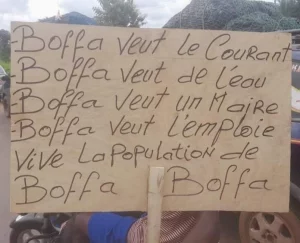 -Boffa veut le Courant
-Boffa veut de l'eau
-Boffa veut un Maire
-Boffa veut l'emploie
Vive La Population de
Boffa Boffa